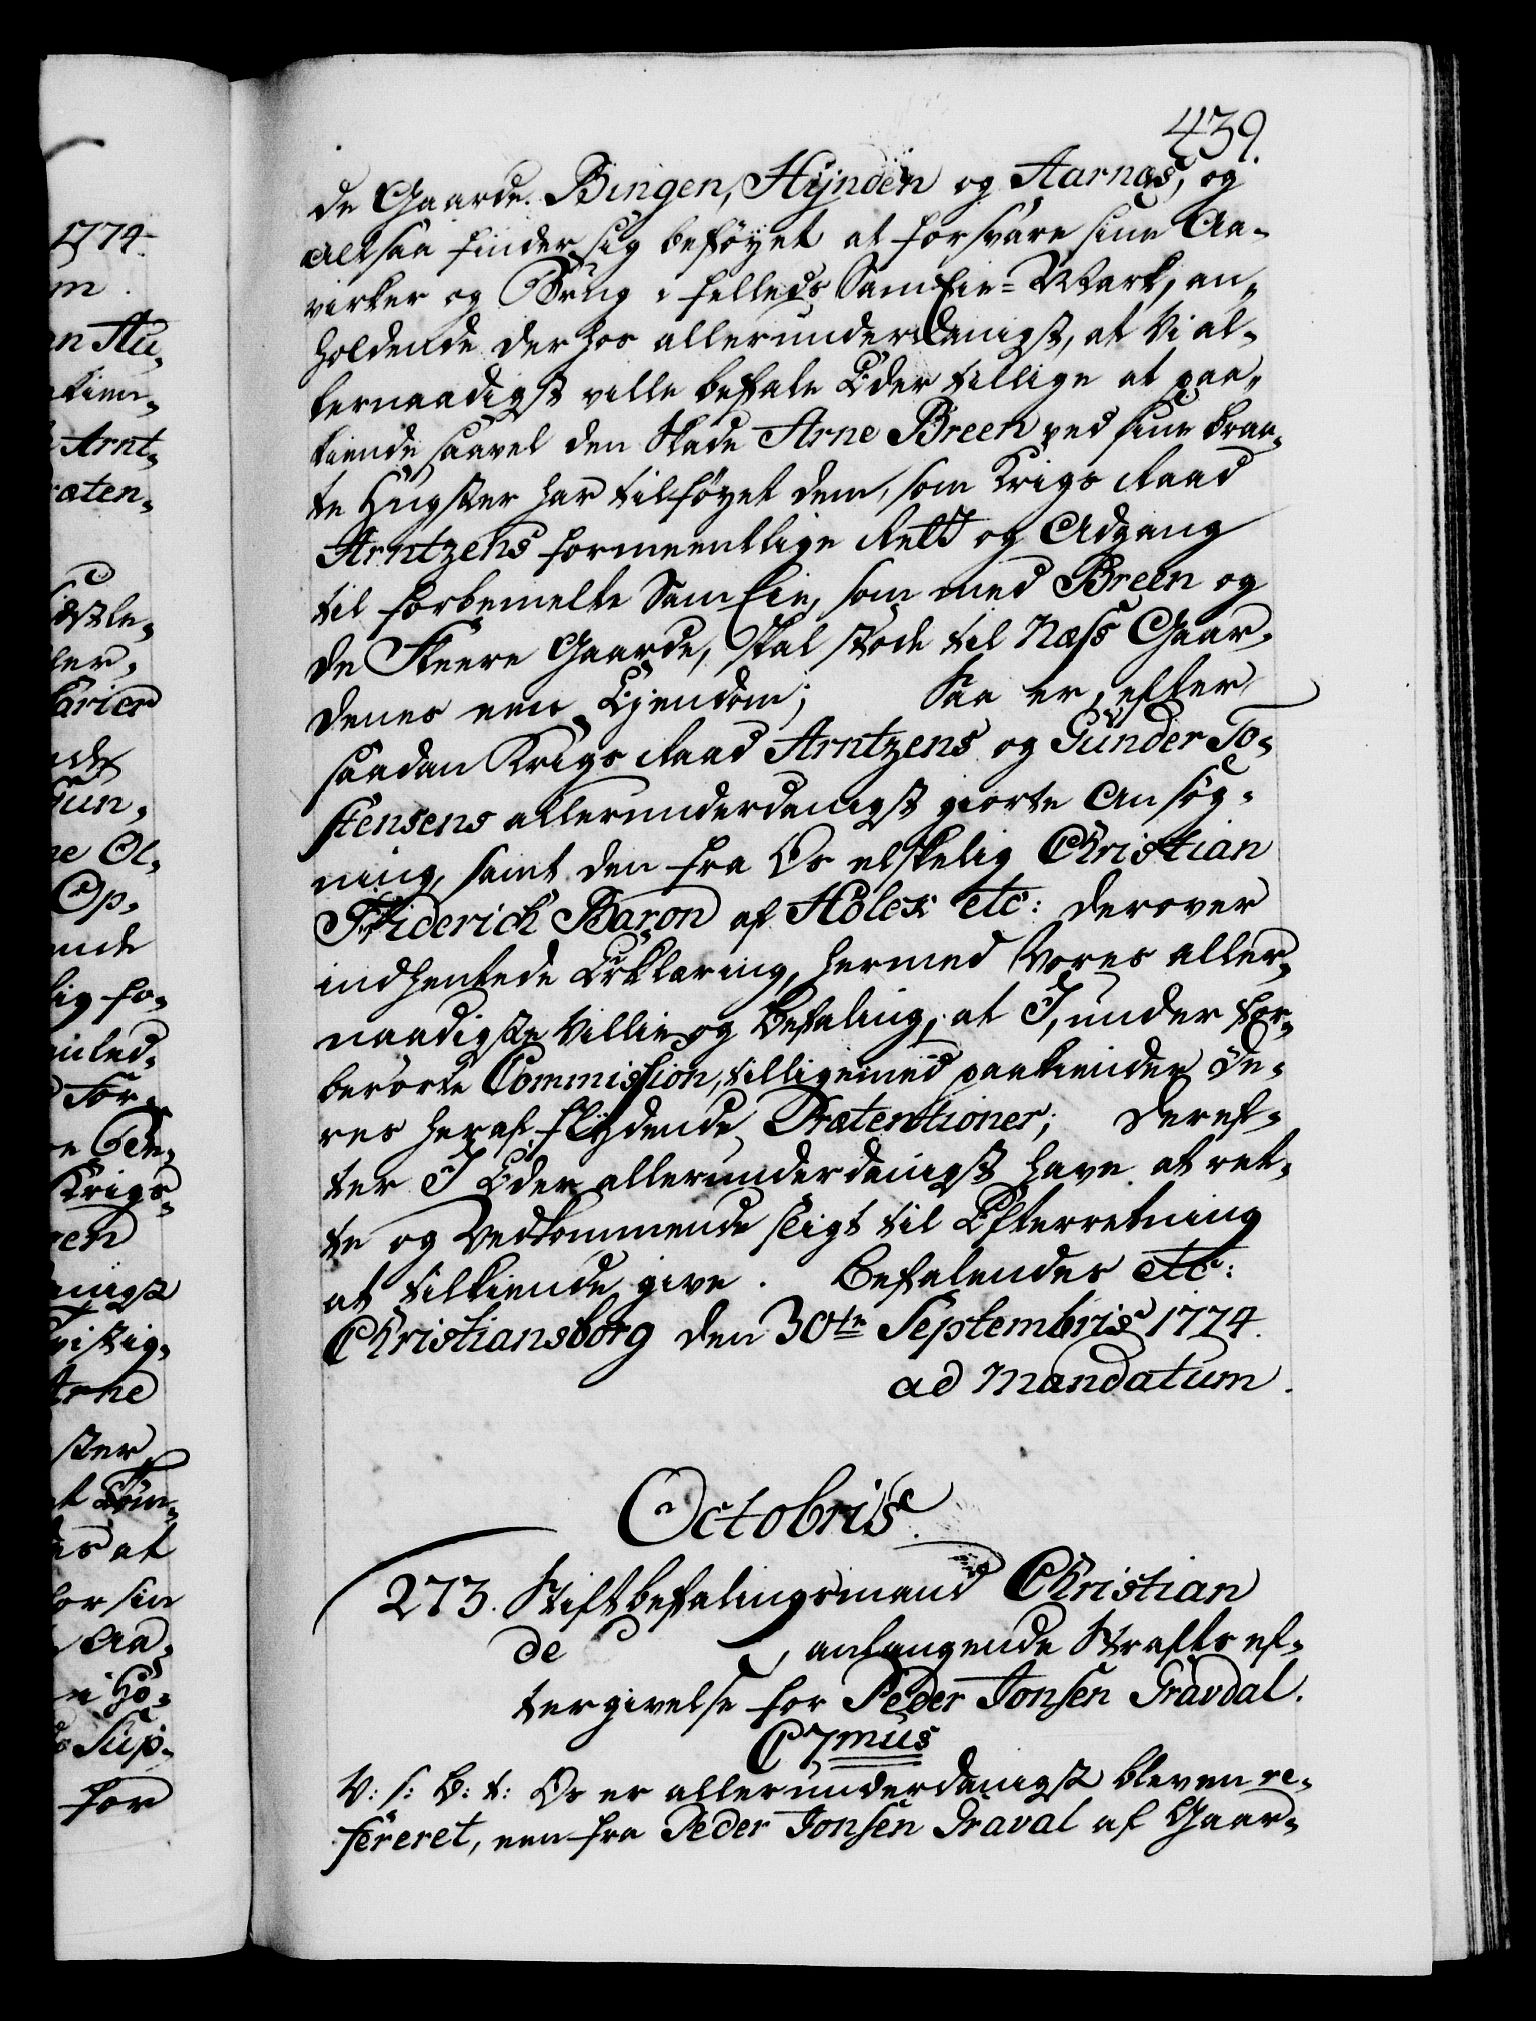 439.
de Gaarde Bingen, Hynden og Aarnæs, og
altsaa finder sig beföyet at forsvare sine Aa-
virker og Brug i felleds SamEie-Mark, an-
holdende derhos allerunderdanigst, at Vi al-
lernaadigst ville befale Eder tillige at paa-
kiende saavel den Skade Arne Breen ved sine braa-
te Hugster har tilföyet dem, som Krigs Raad
Arntzens formeentlige Rett og Adgang
til forbemelte SamEie, som med Breen og
de Fleere Gaarde, skal støde til Næss Gaar-
denes een Ejendom; Saa er, efter
saadan Krigs Raad Arntzens og Gunder To-
stensens allerunderdanigst giorte Ansög-
ning, samt den fra Os elskelig Christian
Friderich Baron af Holck etc: derover
indhentede Erklæring, hermed Vores aller-
naadigste Villie og Befaling, at I, under for-
berörte Commission, tilligemed paakiender de-
res heraf flydende Prætentioner; Deref-
ter I Eder allerunderdanigst have at ret-
te og Vedkommende sligt til Efterretning
at tilkiende give. Befalendes etc:
Christiansborg den 30te Septembris 1774.
ad Mandatum.
Octobris.
273. Stiftbefalingsmand Christian
de , anlangende Straffs ef-
tergivelse for Peder Jonsen Gravdal.
C7mus
V: s: B: t: Os er allerunderdanigst bleven re-
fereret, een fra Peder Jonsen Graval af Gaar-